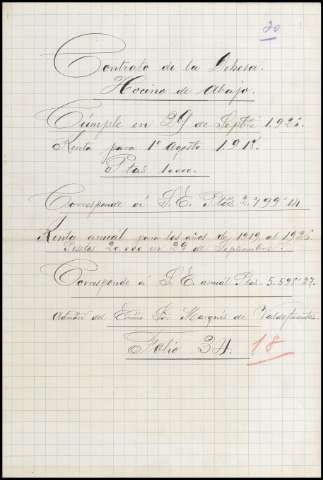 20
Contrato de la Dehesa.
Hocina de Abajo.
Cumple en 29 de Septe 1926.
Renta para 1º Agosto 1918.
Ptas
Corresponde á S. E. Ptas 2.799'14
Renta anual para los años de 1919 al 1926
Pesetas 20.000 en 29 de Septiembre.
Corresponde á S. E. annual Ptas. 5.598'27.
del Excmo Sr. Marqués de Valdefuentes.
Folio 34.
18